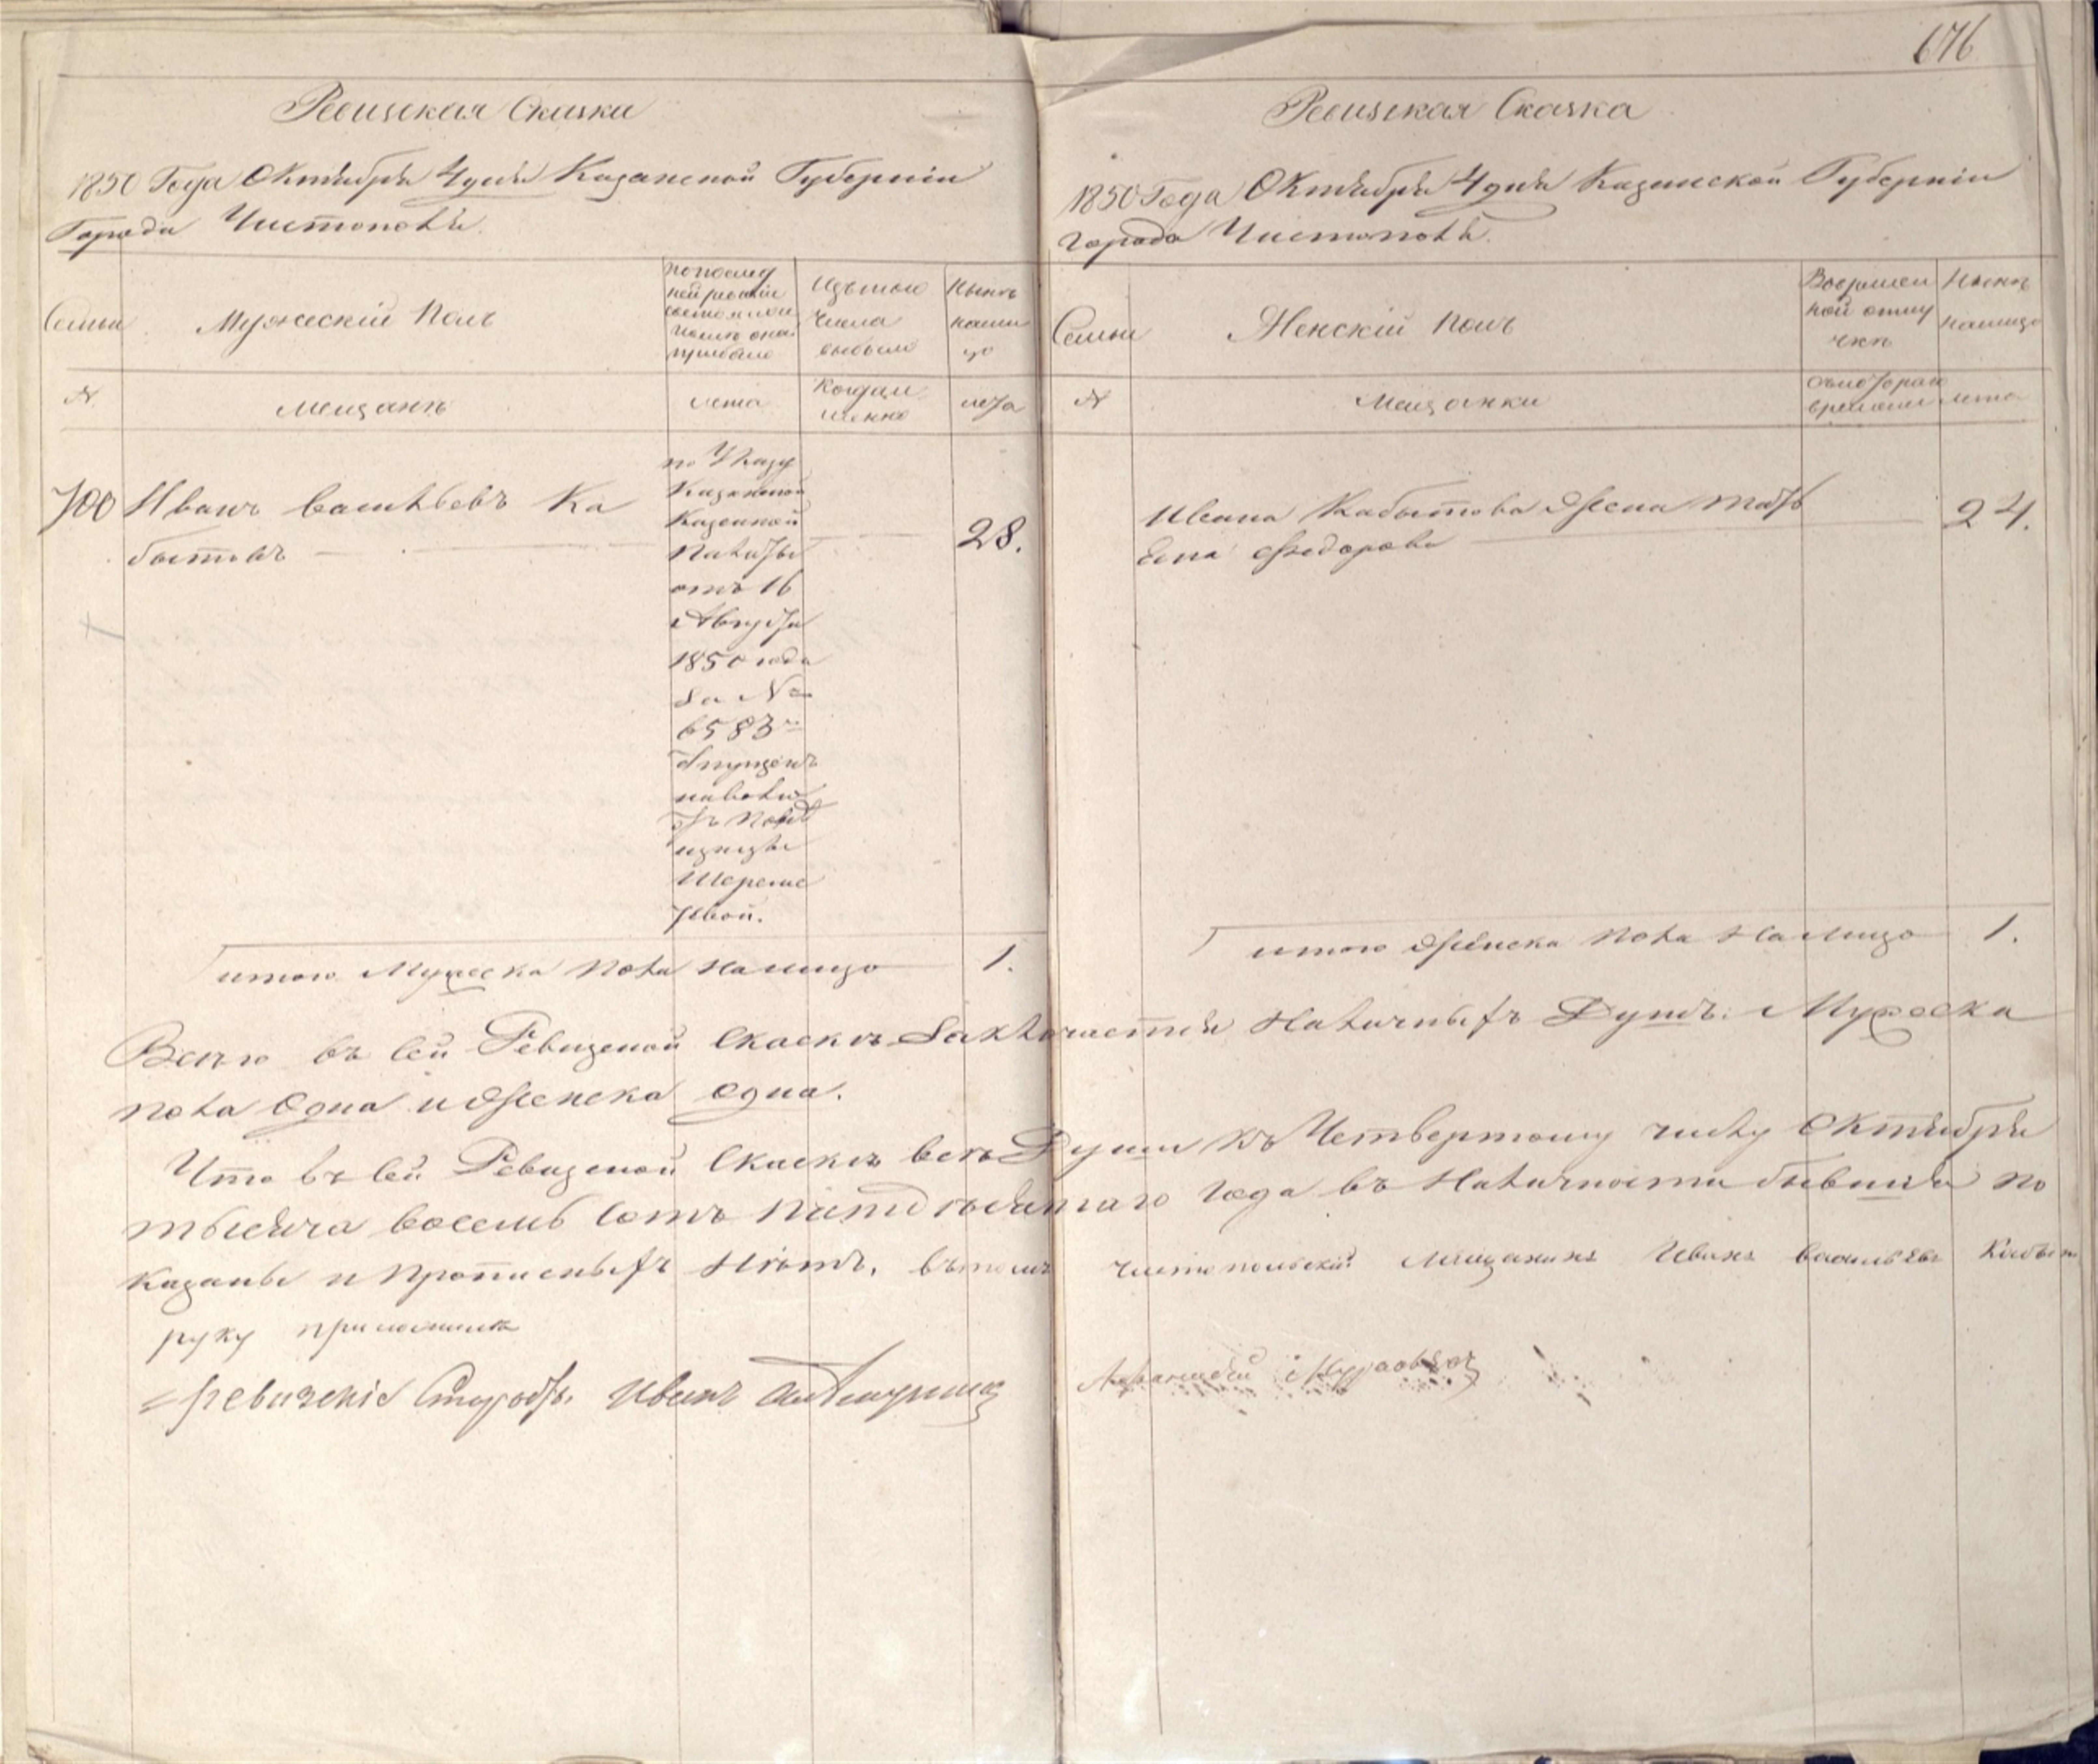 676
Ревизская Сказка
1850 Года Октября 4 дня Казанской Губернiи
Города Чистополя.
Семьи
Мужескiй Полъ
по послед
ней ревизiи
состояло и
после оной
прибыло
Изъ того
числа
выбыло
Ныне
нали
цо
№
мещанъ
лета
Когда и
менно
лета
700 Иванъ Васильевъ Ка
бытовъ
по Указу
Казанской
Казенной
Палаты
отъ 16
Августа
1850 года
За №
6583
отпущенъ
на волю
отъ Пом
ещицы
Шереме
тевой.
28.
итого Мужеска пола налицо 1.
Ревизская Сказка
1850 Года Октября 4 дня Казанской Губернiи
города Чистополя.
Семьи
Женскiй полъ
Во времен
ной отлу
чке
Ныне
налицо
№
Мещанки
съ котораго
времени
лета
Ивана Кабытова Жена Мат
Федорова
24.
итого Женска пола налицо 1.
Всего въ сей Ревизской Сказке Заключается Наличныхъ Душъ: Мужеска
пола Одна и Женска одна.
Что въ сей Ревизской Сказке все Души къ Четвертому числу Октября
тысяча восемь сотъ пятьдесятаго года въ Наличности бывшiя по
казаны и Прописныхъ Нетъ, въ томъ чистопольскiй Мещанинъ Иванъ Васильевъ Кабыт
руку приложилъ
Ревизскiй Иванъ